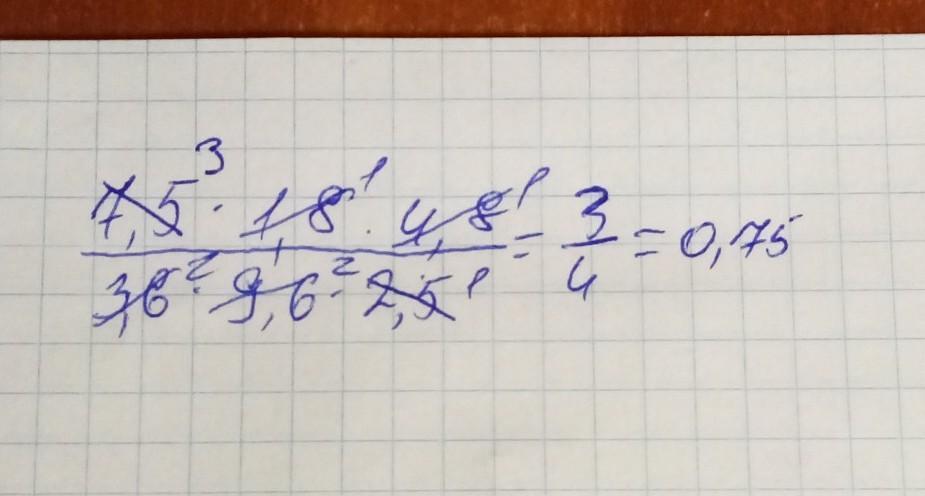 7,5³ · 1,8¹ · 4,8¹
3,6² · 9,6² · 2,5¹ = 3/4 = 0,75